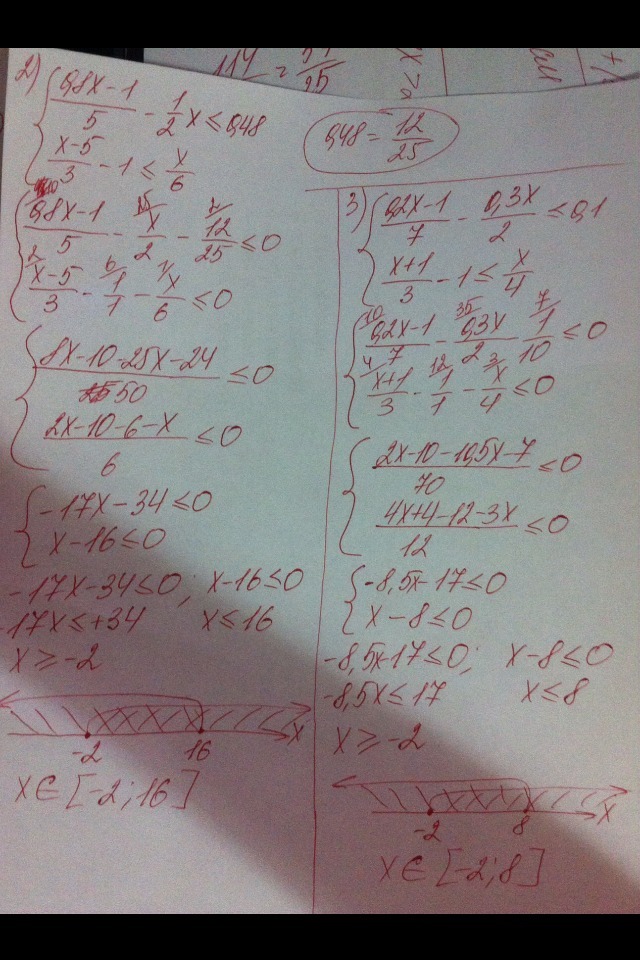 2) { (0,8x-1)/5 - 1/2 x ≤ 0,48
(x-5)/3 - 1 ≤ x/6
0,48 = 12/25
{ (0,8x-1)/5 - x/2 - 12/25 ≤ 0
(x-5)/3 - 1/1 - x/6 ≤ 0
{ (8x-10-25x-24)/50 ≤ 0
(2x-10-6-x)/6 ≤ 0
{ -17x-34 ≤ 0
x-16 ≤ 0
-17x-34 ≤ 0; x-16 ≤ 0
-17x ≤ +34 x ≤ 16
x ≥ -2
-2 16 x
x ∈ [-2; 16]
3) { (0,2x-1)/7 - 0,3x/2 ≤ 0,1
(x+1)/3 - 1 ≤ x/4
{ (0,2x-1)/7 - 0,3x/2 - 1/10 ≤ 0
(x+1)/3 - 1/1 - x/4 ≤ 0
{ (2x-10-10,5x-7)/70 ≤ 0
(4x+4-12-3x)/12 ≤ 0
{ -8,5x-17 ≤ 0
x-8 ≤ 0
-8,5x-17 ≤ 0; x-8 ≤ 0
-8,5x ≤ 17 x ≤ 8
x ≥ -2
-2 8 x
x ∈ [-2; 8]